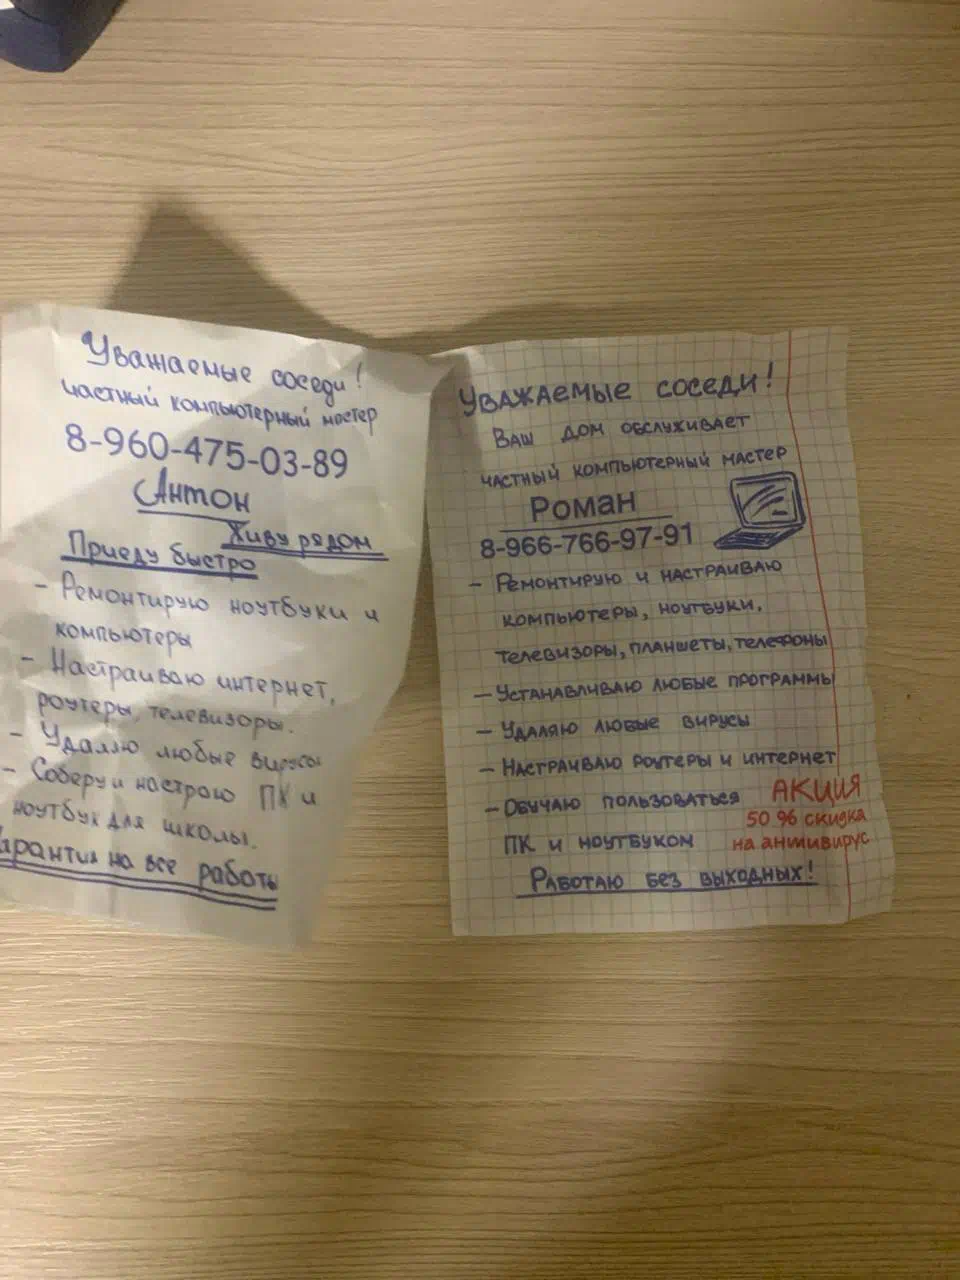 Уважаемые соседи!
частный компьютерный мастер
8-960-475-03-89
Антон
Живу рядом
Приеду быстро
- Ремонтирую ноутбуки и
компьютеры
- Настраиваю интернет,
роутеры, телевизоры.
- Удаляю любые вирусы
- Соберу и настрою ПК и
ноутбук для школы.
Гарантия на все работы
Уважаемые соседи!
Ваш дом обслуживает
частный компьютерный мастер
Роман
8-966-766-97-91
- Ремонтирую и настраиваю
компьютеры, ноутбуки,
телевизоры, планшеты, телефоны
- Устанавливаю любые программы
- Удаляю любые вирусы
- Настраиваю роутеры и интернет
- Обучаю пользоваться
ПК и ноутбуком
АКЦИЯ
50 % скидка
на антивирус
Работаю без выходных!